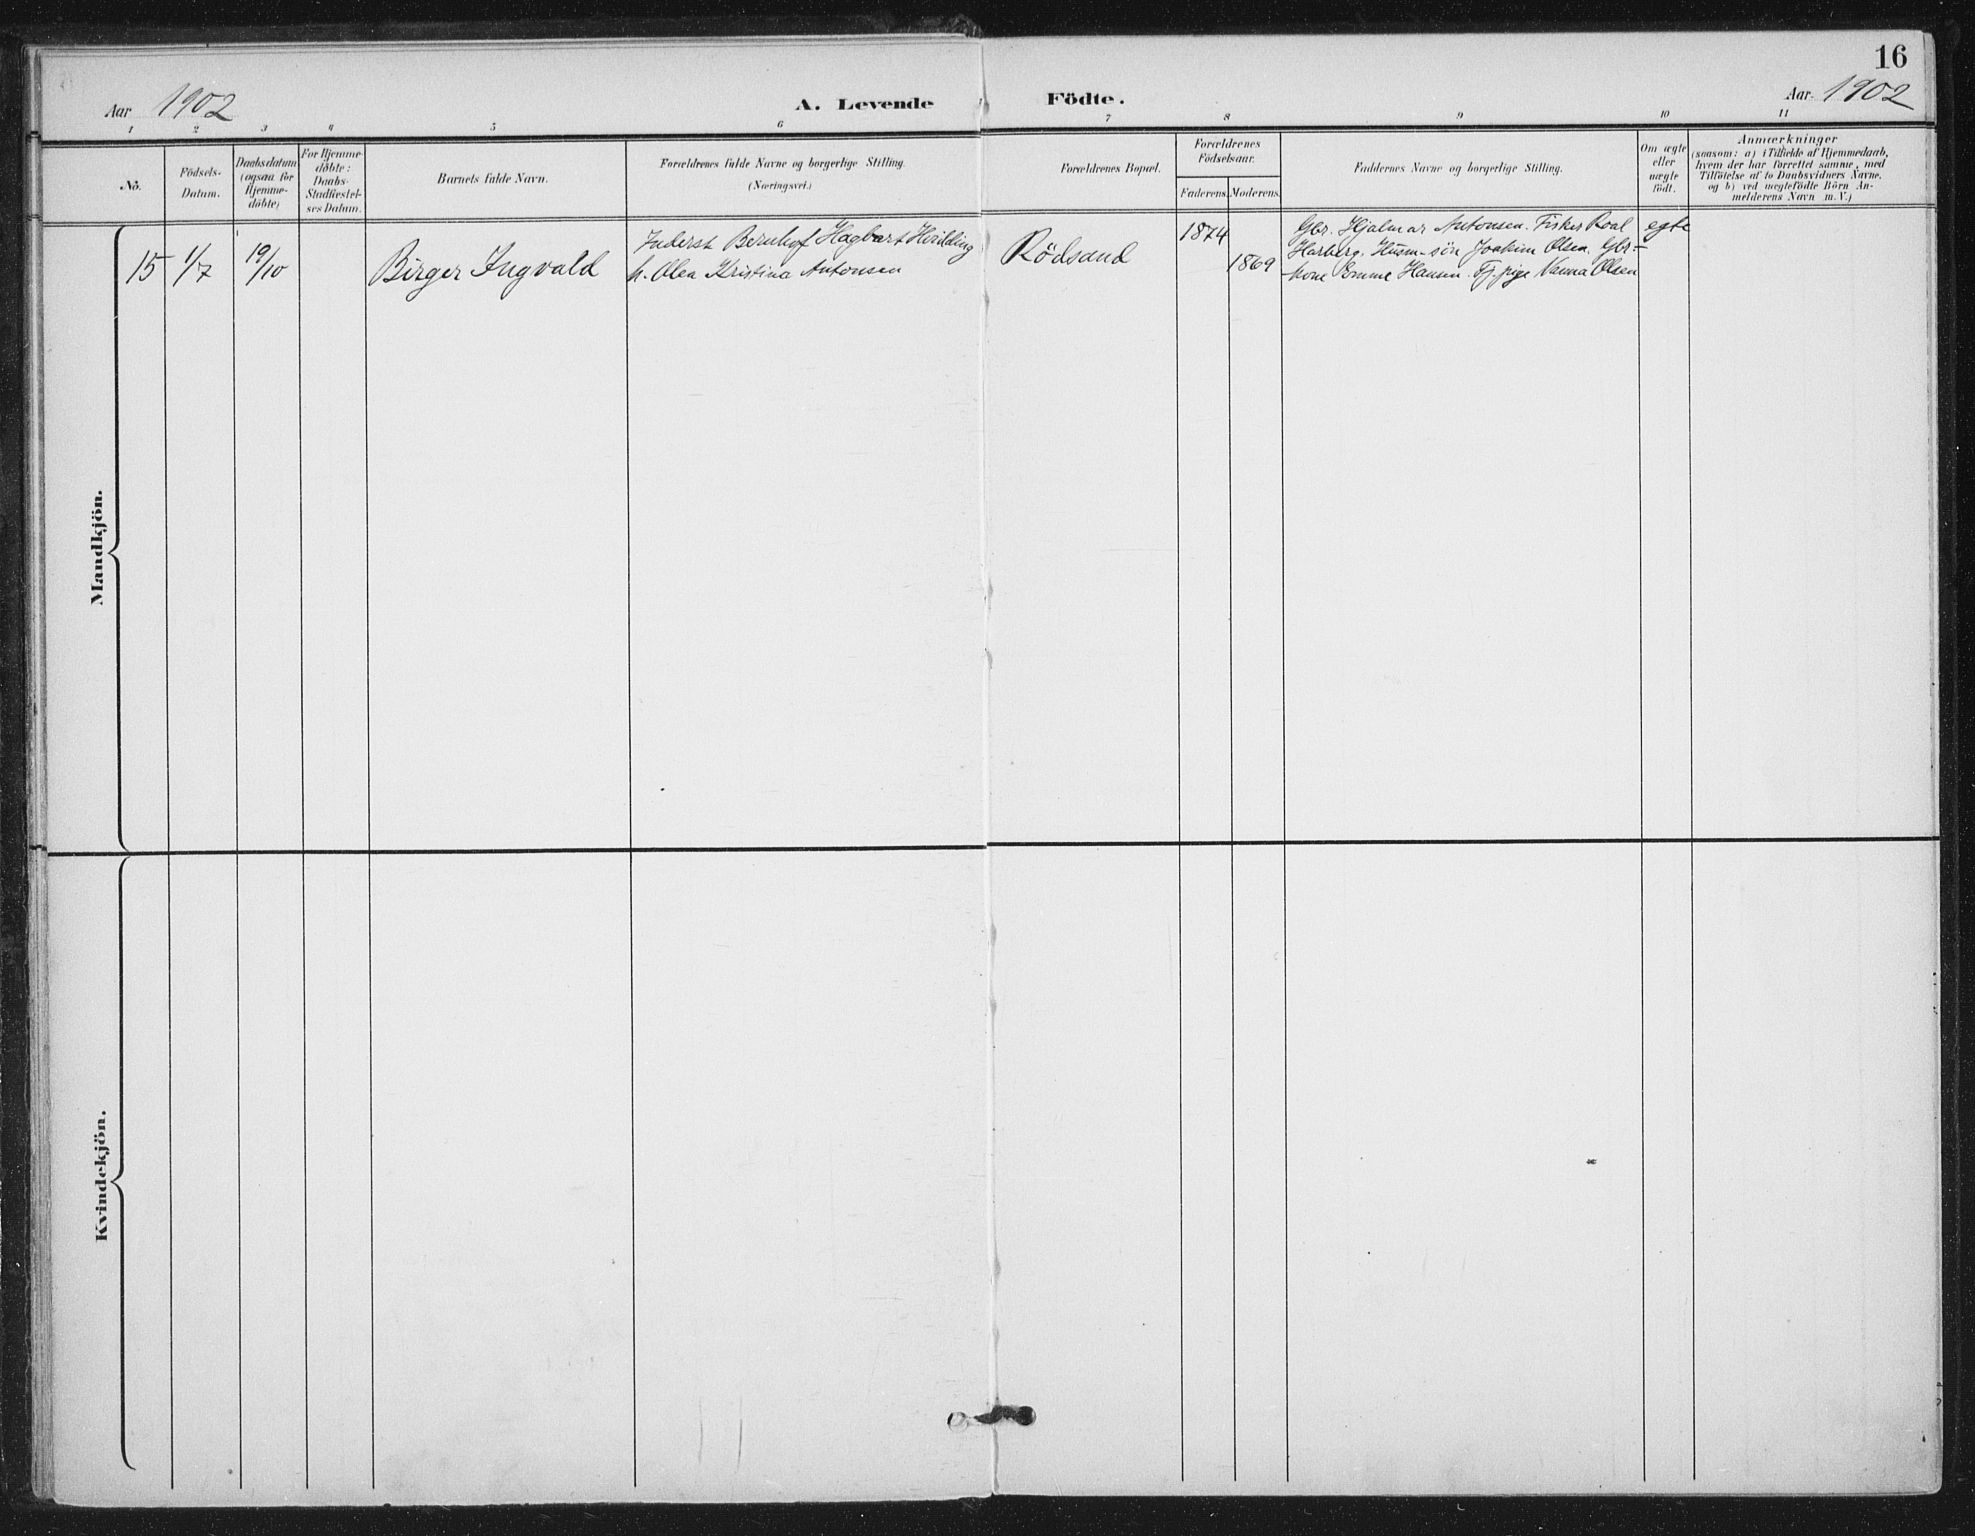 16
Aar 1902
A. Levende Födte.
Aar 1902
1 2 3 4 5 6 7 8 9 10 11
No.
Födsels-
Datum.
Daabsdatum
(ogsaa for
Hjemme-
döbte)
For Hjemme-
döbte:
Daabs-
Stadfæstel-
ses Datum.
Barnets fulde Navn.
Forældrenes fulde Navne og borgerlige Stilling.
(Næringsvei.)
Forældrenes Bopæl.
Forældrenes
Födselsaar.
Faderens. Moderens.
Faddernes Navne og borgerlige Stilling.
Om ægte
eller
uægte
födt.
Anmærkninger
(saasom: a) i Tilfælde af Hjemmedaab,
hvem der har forrettet samme, med
Tilföielse af to Daabsvidners Navne,
og b) ved uægtefödte Börn An-
melderens Navn m. V.)
Mandkjön.
15 1/7 19/10
Birger Ingvald
Inderst Bernhof Hagbart Hvilding
h. Olea Kristina Antonsen
Rödsand
1874
1869
Gbr. Hjalmar Antonsen. Fisker Roal
Harberg. Husm-sön Joakim Olsen. Gbr-
kone Emme Hansen. Tj.pige Nanna Olsen
egte
Kvindekjön.